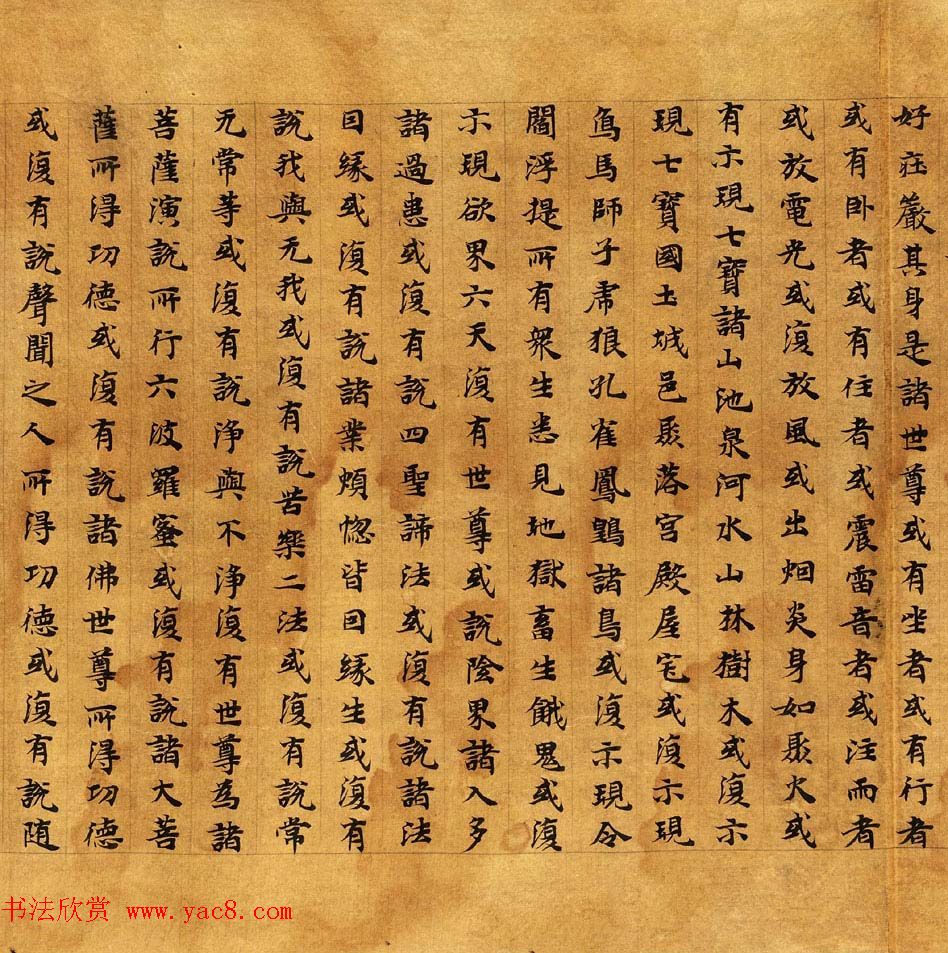 好莊嚴其身是諸世尊或有坐者或有行者
或有卧者或有住者或震雷音者或注雨者
或放電光或復放風或出烟炎身如聚火或
有示現七寶諸山池泉河水山林樹木或復示
現七寶國土城邑聚落宮殿屋宅或復示現
烏馬師子席狼孔雀鳳凰諸鳥或復示現令
閻浮提所有衆生悉見地獄畜生餓鬼或復
示現欲界六天復有世尊或說陰界諸入多
諸過患或復有說四聖諦法或復有說諸法
因緣或復有說諸業煩惱皆因緣生或復有
說我與无我或復有說苦樂二法或復有說常
无常等或復有說淨與不淨復有世尊為諸
菩薩演說所行六波羅蜜或復有說諸大菩
薩所得功德或復有說諸佛世尊所得功德
或復有說聲聞之人所得功德或復有說随
书法欣赏 www.yac8.com